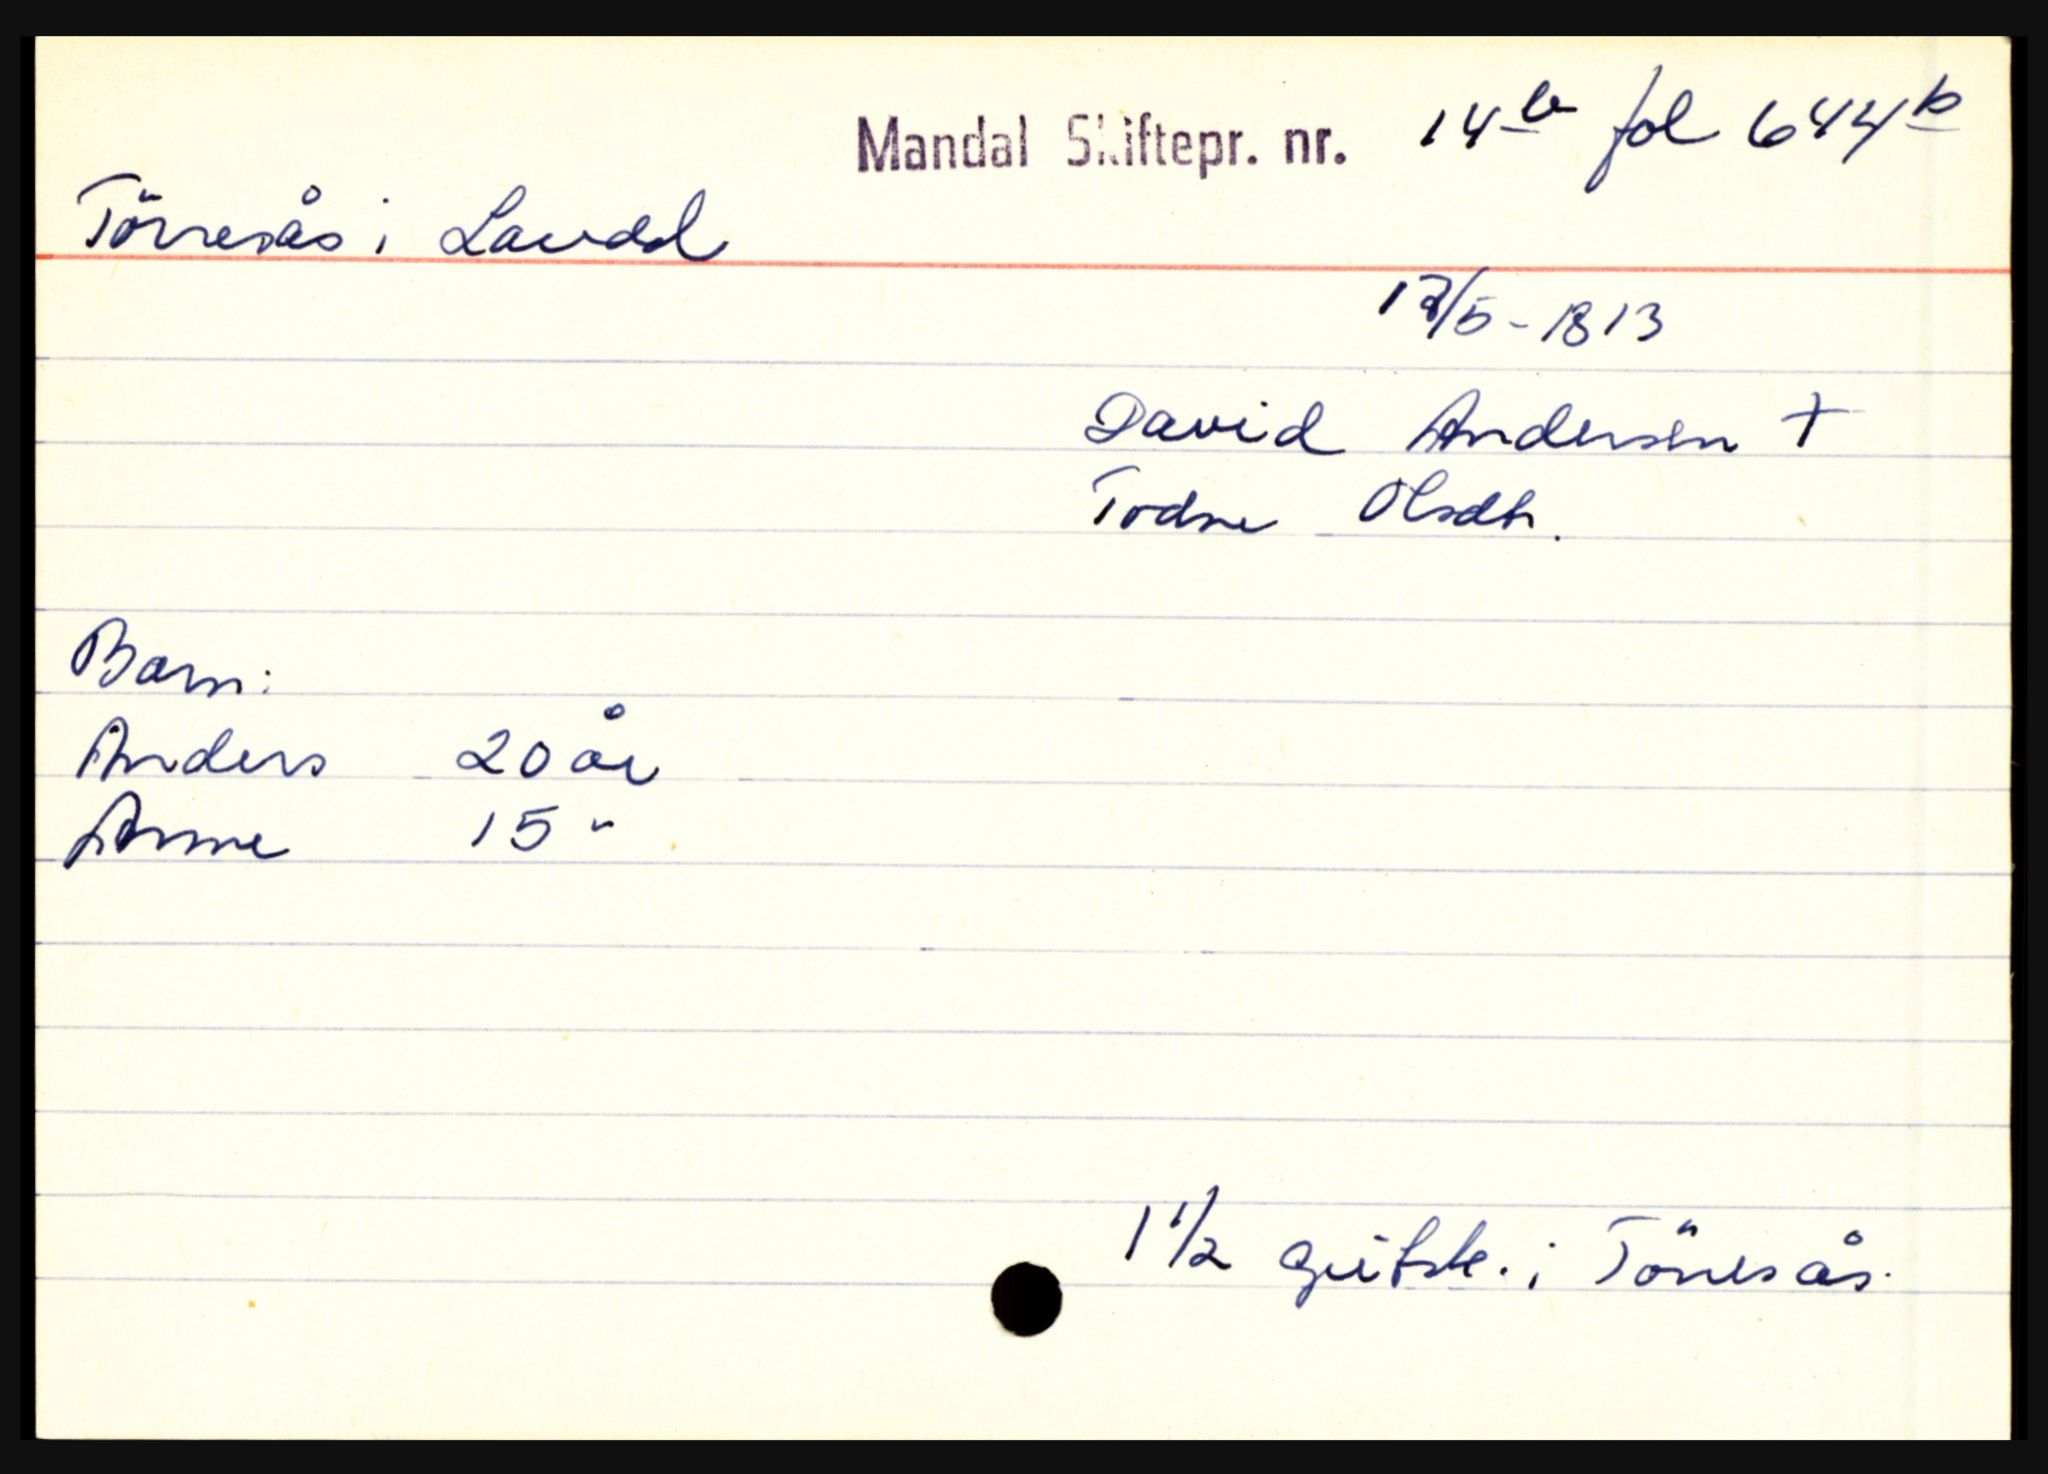 Mandal Skiftepr. nr. 14b fol 644b
Törresås i Laudal
/5 - 1813
David Andersen +
Todne Olsdtr.
Barn:
Anders 20 år
Anne 15 "
1 1/2 gützk. i Törresås.